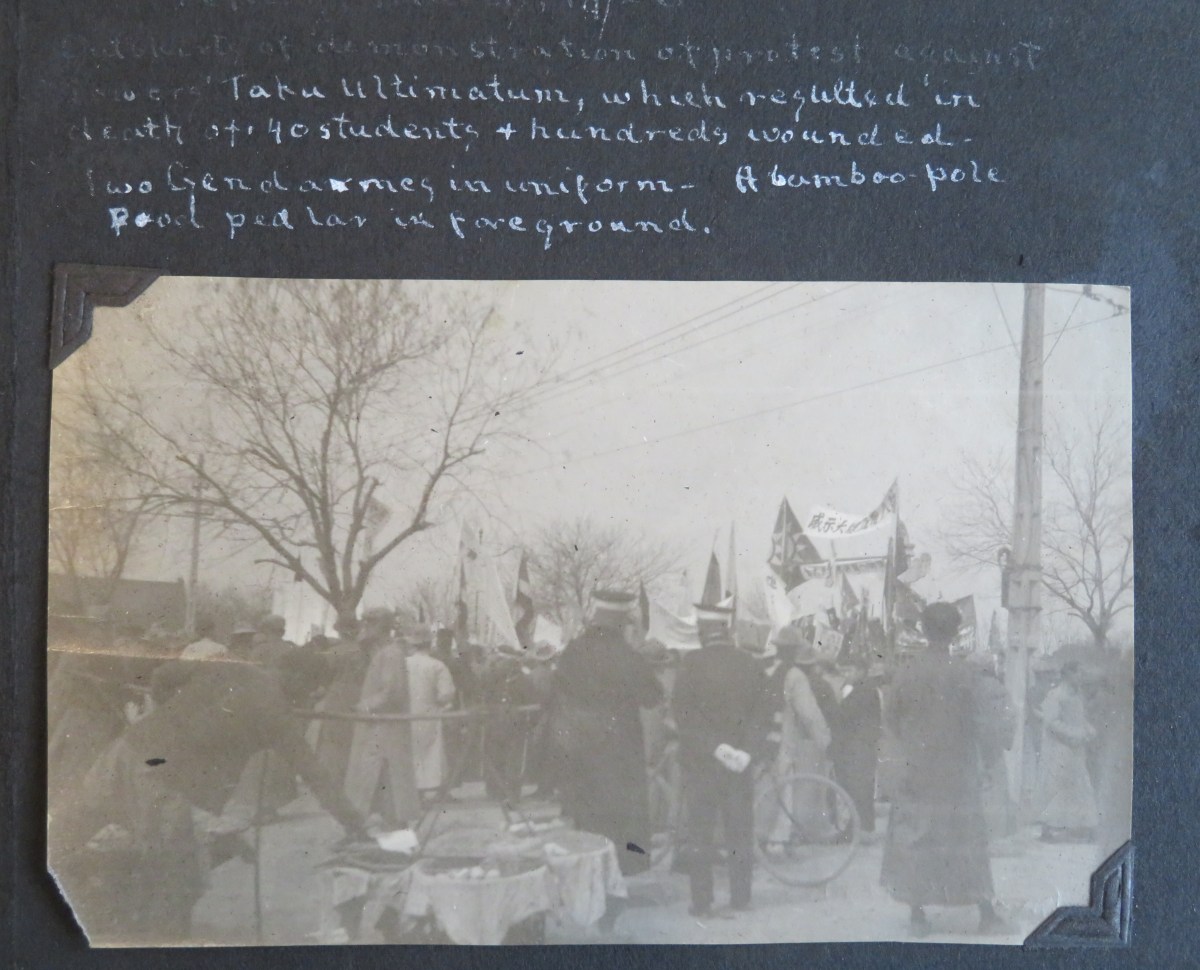 of demonstration of protest against
Powers' Taku Ultimatum, which resulted in
death of 40 students + hundreds wounded.
Two Gendarmes in uniform - A bamboo-pole
Food pedlar in foreground.
示大